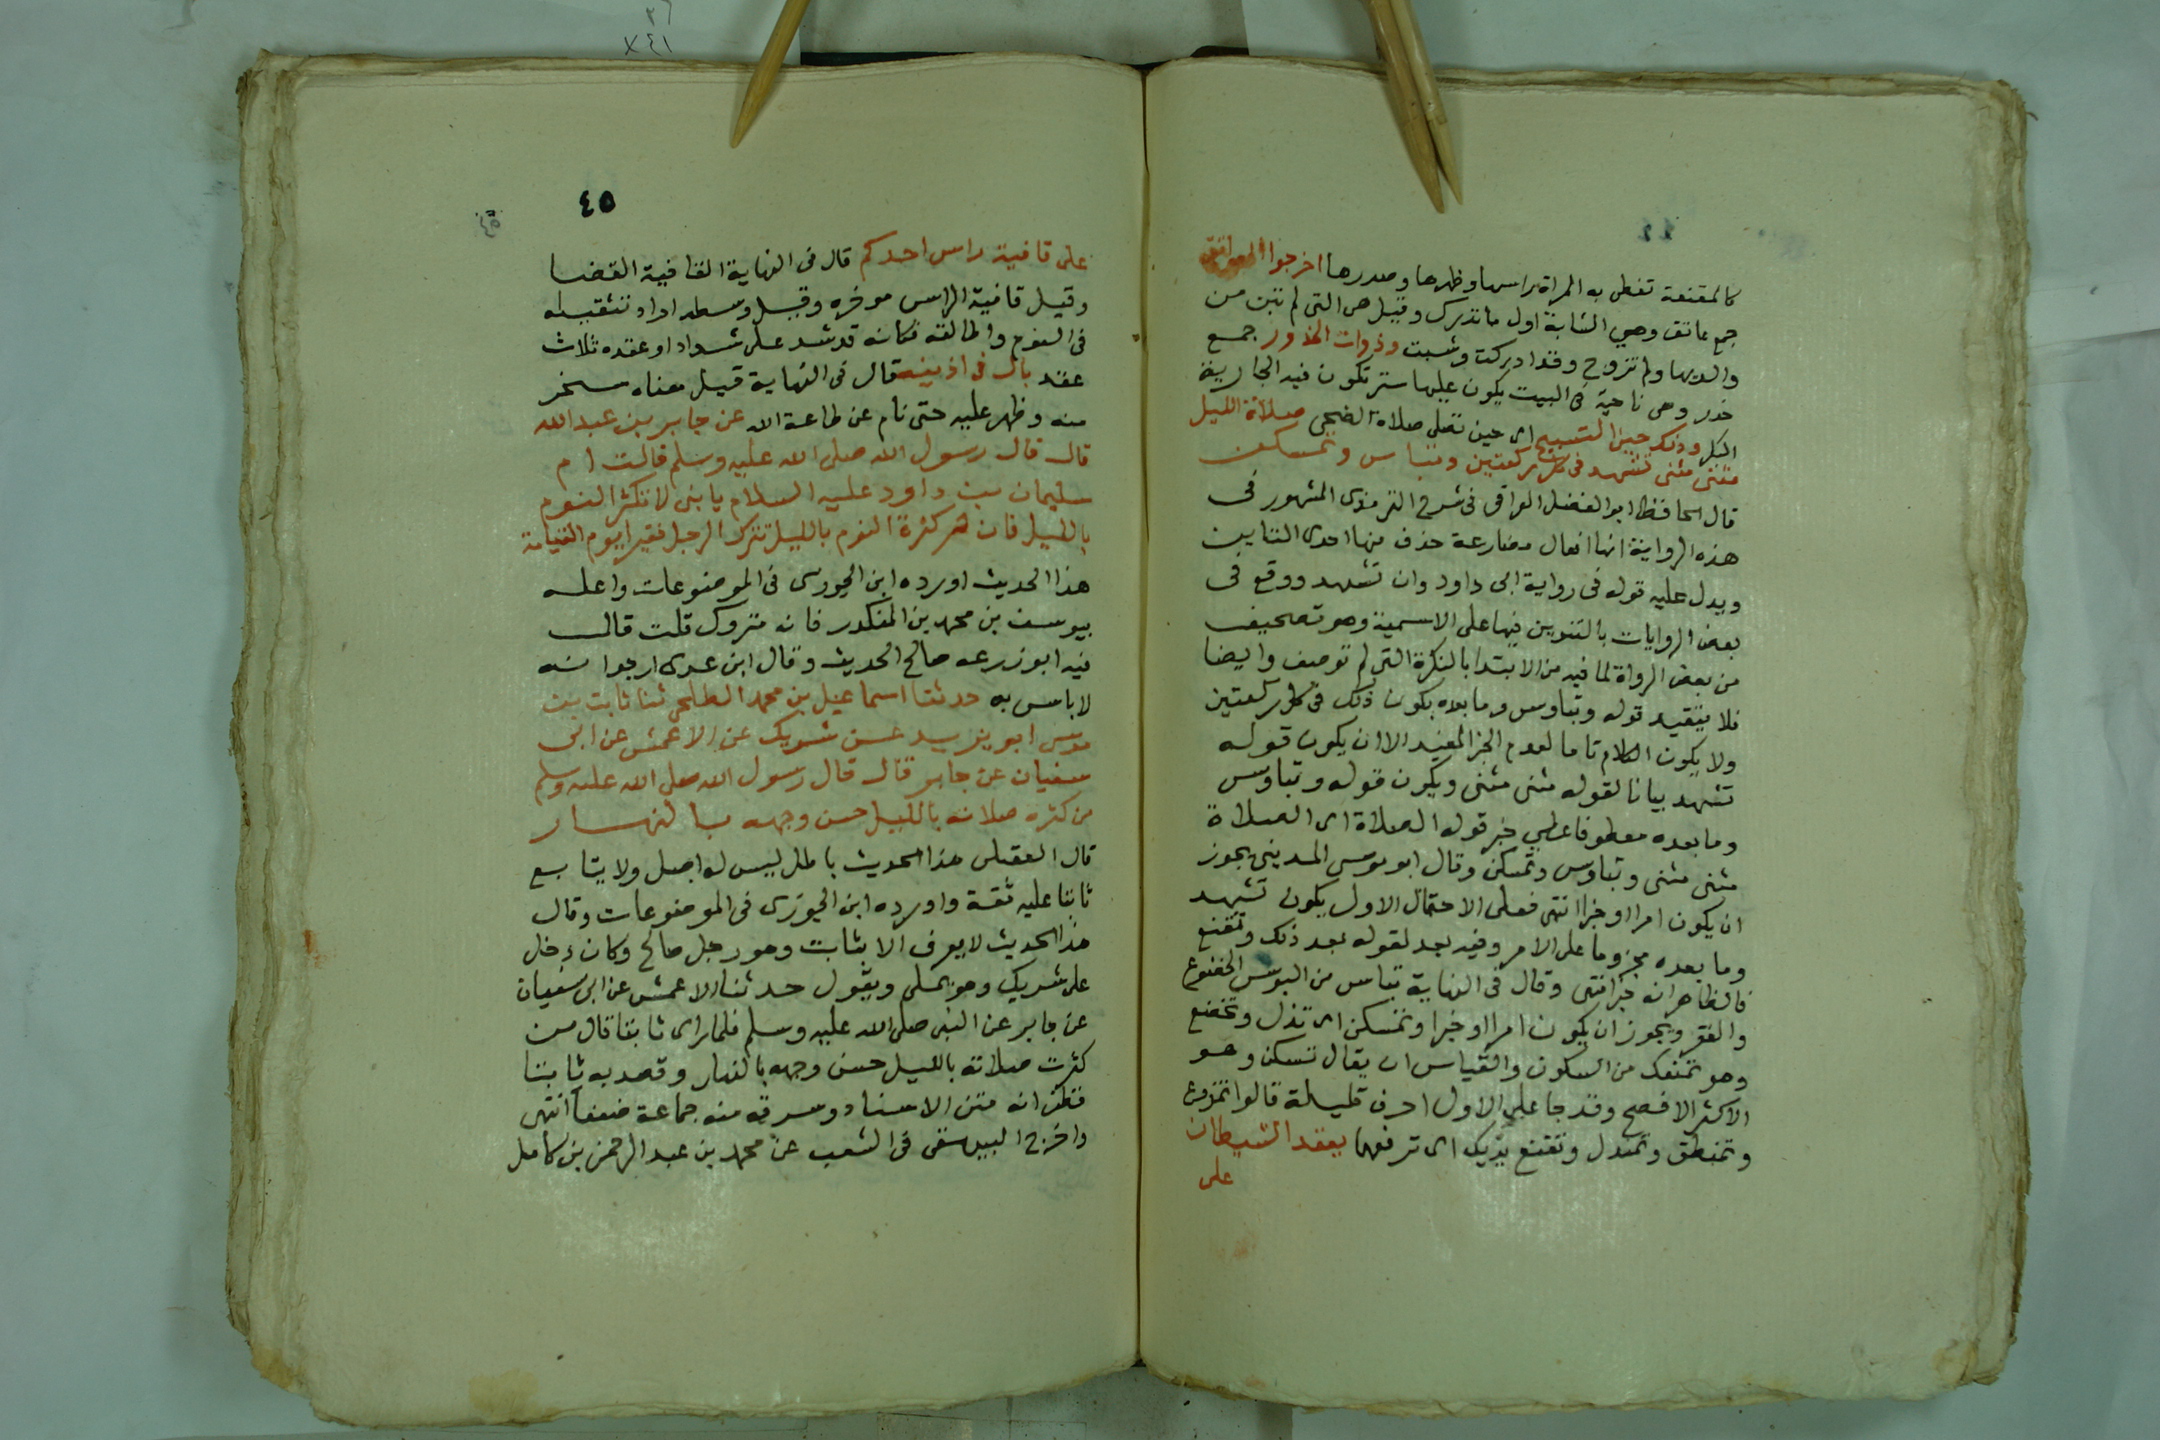 كالمقنعة تغطى به المراة راسها وظهرها وصدرها اخرجوا العواتق
جمع عاتق وهي الشابة اول ما تدرك وقيل هى التى لم تبن من
والديها ولم تزوج وقد ادركت وشبت وذوات الخدور جمع
خدر وهى ناحية فى البيت يكون عليها ستر تكون فيه الجارية
البكر وذلك حين التسبيح اى حين تصلى صلاة الضحى صلاة الليل
مثنى مثنى تشهد فى كل ركعتين وتباس وتمسكن
قال الحافظ ابو الفضل العراقى فى شرح الترمذى المشهور فى
هذه الرواية انها افعال مضارعة حذف منها احدى التايين
ويدل عليه قوله فى رواية ابى داود وان تشهد ووقع فى
بعض الروايات بالتنوين فيها على الاسمية وهو تصحيف
من بعض الرواة لما فيه من الابتدا بالنكرة التى لم توصف وايضا
فلا يتقيد قوله وتباوس وما بعده بكون ذلك فى كل ركعتين
ولا يكون الكلام تاما لعدم الخبر المفيد الا ان يكون قوله
تشهد بيانا لقوله مثنى مثنى ويكون قوله وتباوس
وما بعده معطوفا على خبر قوله الصلاة اى الصلاة
مثنى مثنى وتباوس وتمسكن وقال ابو موسى المدينى يجوز
ان يكون امرا او خبرا انتهى فعلى الاحتمال الاول يكون تشهد
وما بعده مجزوما على الامر وفيه بعد لقوله بعد ذلك وتقنع
فالظاهر انه خبر انتهى وقال فى النهاية تباس من البوس الخضوع
والفقر ويجوز ان يكون امرا او خبرا وتمسكن اى تذل وتخضع
وهو تمفعل من السكون والقياس ان يقال تسكن وهو
الاكثر الافصح وقد جا على الاول احرف قليلة قالوا تمدرع
وتمنطق وتمندل وتقنع يديك اى ترفعهما يعقد الشيطان
على
٤٥
على قافية راس احدكم قال فى النهاية القافية القفا
وقيل قافية الراس موخره وقيل وسطه اراد تثقيله
فى النوم واطالته فكانه قد شد على شدادا وعقده ثلاث
عقد بال فى اذنيه قال فى النهاية قيل معناه سخر
منه وظهر عليه حتى نام عن طاعة الله عن جابر بن عبد الله
قال قال رسول الله صلى الله عليه وسلم قالت ام
سليمان بن داود عليه السلام يا بنى لا تكثر النوم
بالليل فان كثرة النوم بالليل تترك الرجل فقيرا يوم القيامة
هذا الحديث اورده ابن الجوزى فى الموضوعات واعله
بيوسف بن محمد بن المنكدر فانه متروك قلت قال
فيه ابو زرعه صالح الحديث وقال ابن عدى ارجوا انه
لا باس به حدثنا اسماعيل بن محمد الطلحى ثنا ثابت بن
موسى ابو يزيد عن شريك عن الاعمش عن ابى
سفيان عن جابر قال قال رسول الله صلى الله عليه وسلم
من كثرة صلاته بالليل حسن وجهه بالنهار
قال العقيلى هذا الحديث باطل ليس له اصل ولا يتابع
ثابتا عليه ثقة واورده ابن الجوزى فى الموضوعات وقال
هذا الحديث لا يعرف الا بثابت وهو رجل صالح وكان دخل
على شريك وهو يملى ويقول حدثنا الاعمش عن ابى سفيان
عن جابر عن النبى صلى الله عليه وسلم فلما راى ثابتا قال من
كثرت صلاته بالليل حسن وجهه بالنهار وقصد به ثابتا
فظن انه متن الاسناد وسرقه منه جماعة ضعفا انتهى
واخرج البيهقى فى الشعب عن محمد بن عبد الرحمن بن كامل